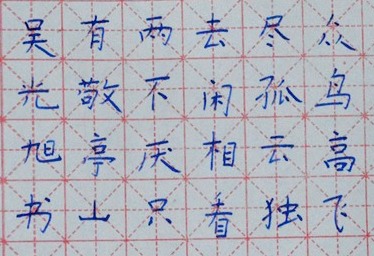 众鸟高飞
尽孤云独
去闲相看
两不厌只
有敬亭山
吴光旭书